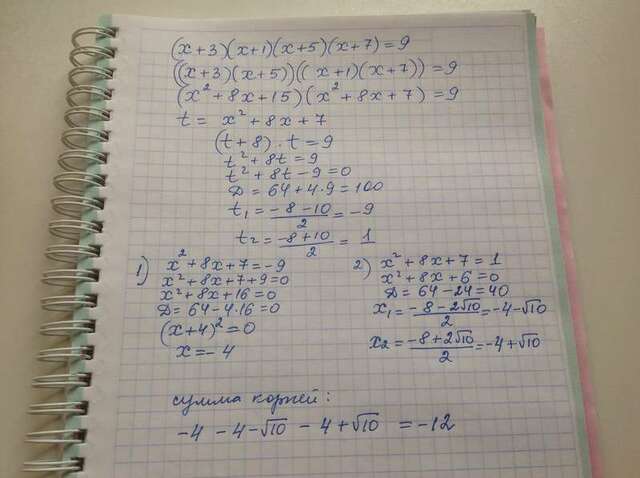 (x+3)(x+1)(x+5)(x+7)=9
((x+3)(x+5))((x+1)(x+7))=9
(x²+8x+15)(x²+8x+7)=9
t = x²+8x+7
(t+8)·t=9
t²+8t=9
t²+8t-9=0
D=64+4·9=100
t₁=(-8-10)/2=-9
t₂=(-8+10)/2=1
1) x²+8x+7=-9
x²+8x+7+9=0
x²+8x+16=0
D=64-4·16=0
(x+4)²=0
x=-4
2) x²+8x+7=1
x²+8x+6=0
D=64-24=40
x₁=(-8-2√10)/2=-4-√10
x₂=(-8+2√10)/2=-4+√10
сумма корней:
-4 -4-√10 -4+√10 =-12